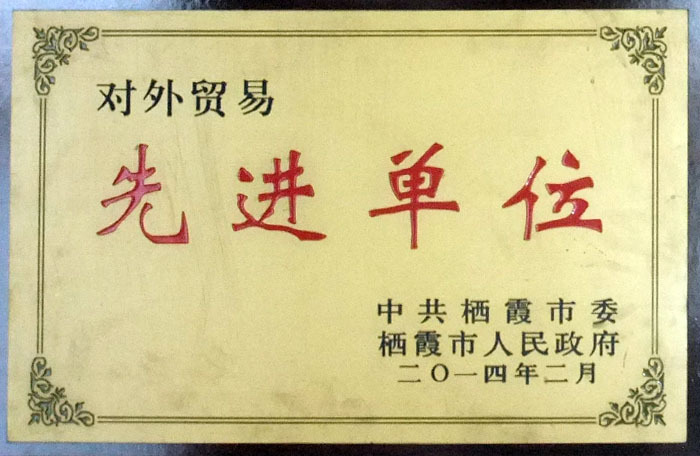 对外贸易
先进单位
中共栖霞市委
栖霞市人民政府
二〇一四年二月